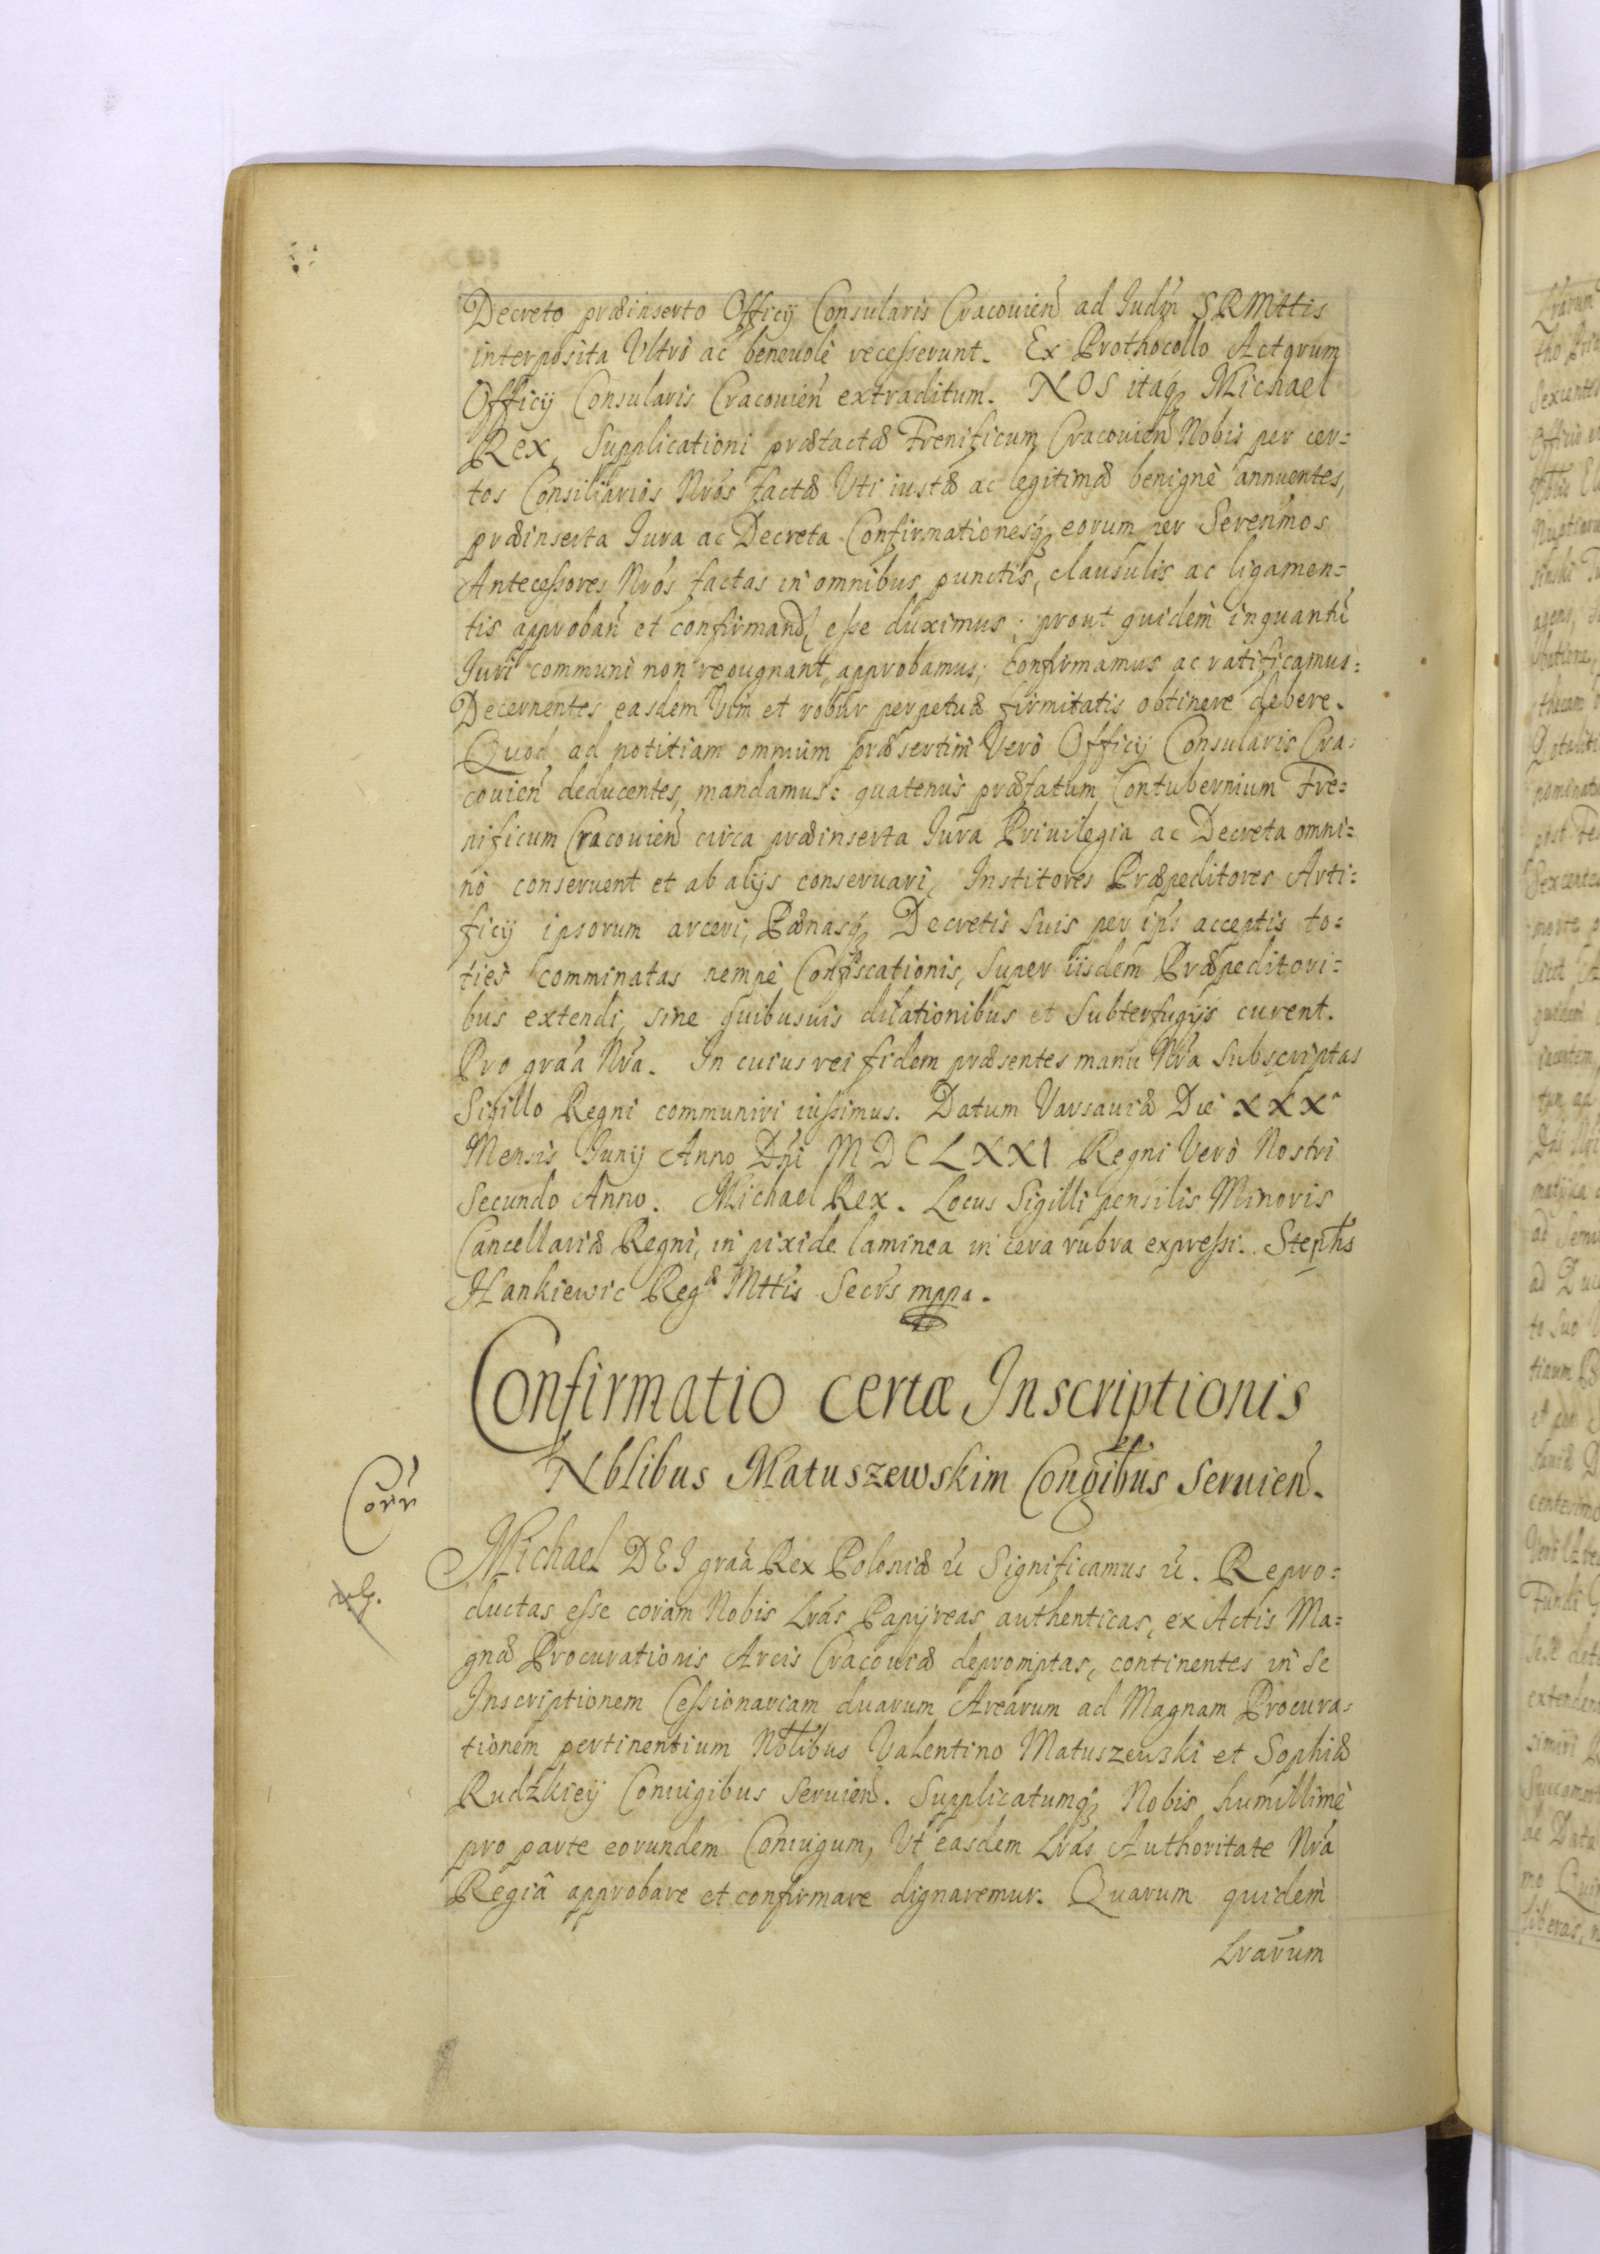 Decreto præinserto Officij Consularis Cracouien̄ ad Iudm̄ SRMttis
interposita Ultrò ac beneuolè recesserunt. Ex Prothocollo Actorum
Officij Consularis Cracouien̄ extraditum. NOS itaq̃ Michael
Rex, Supplicationi prætactæ Frenificum Cracouien̄ Nobis per cer=
tos Consiliarios Nr̄os factæ Uti iustæ ac legitimæ benignè annuentes,
præinserta Iura ac Decreta Confirmationesq̃ eorum per Seren̄mos
Antecessores Nr̄os factas in omnibus punctis, clausulis ac ligamen=
tis approban̄ et confirmand̄ esse duximus; prout quidem inquantū
Iuri communi non repugnant, approbamus, confirmamus ac ratificamus:
Decernentes easdem Vim et robur perpetuæ firmitatis obtinere debere.
Quod ad notitiam omnium præsertim Verò Officij Consularis Cra=
couien̄ deducentes, mandamus: quatenus præfatum Contubernium Fre=
nificum Cracouien̄ circa præinserta Iura Priuilegia ac Decreta omni=
nò conseruent et ab alijs conseruari, Institores Præpeditores Arti=
ficij ipsorum arceri, Pænasq̃ Decretis suis per ip̄s acceptis to=
ties comminatas nempè Confiscationis, super iisdem Præpeditori=
bus extendi, sine quibusuis dilationibus et Subterfugijs curent.
Pro gra͞a Nr̄a. In cuius rei fidem præsentes manu Nr̄a Subscriptas
Sigillo Regni communiri iussimus. Datum Varsauiæ Die XXX^a
Mensis Iunij Anno Dn̄i MDCLXXI Regni Verò Nostri
Secundo Anno. Michael Rex. Locus Sigilli pensilis Minoris
Cancellariæ Regni, in pixide laminea in cera rubra expressi. Steph̄s
Hankiewic Reg^æ Mttis Secr̄s mppa.
Confirmatio certæ Inscriptionis
Nb̄libus Matuszewskim Congib̄us seruien̄.
Corr̄
Michael DEI gra͞a Rex Poloniæ &c̄ Significamus &c̄. Repro=
ductas esse coram Nobis Lr̄as Papijreas authenticas, ex Actis Ma=
gnæ Procurationis Arcis Cracouiæ depromptas, continentes in se
Inscriptionem Cessionariam duarum Arearum ad Magnam Procura=
tionem pertinentium Nob̄libus Valentino Matuszewski et Sophiæ
Rudzkieÿ Coniugibus seruien̄. Supplicatumq̃ Nobis humillimè
pro parte eorundem Coniugum, Ut easdem Lr̄as Authoritate Nr̄a
Regiâ approbare et confirmare dignaremur. Quarum quidem
Lrarum